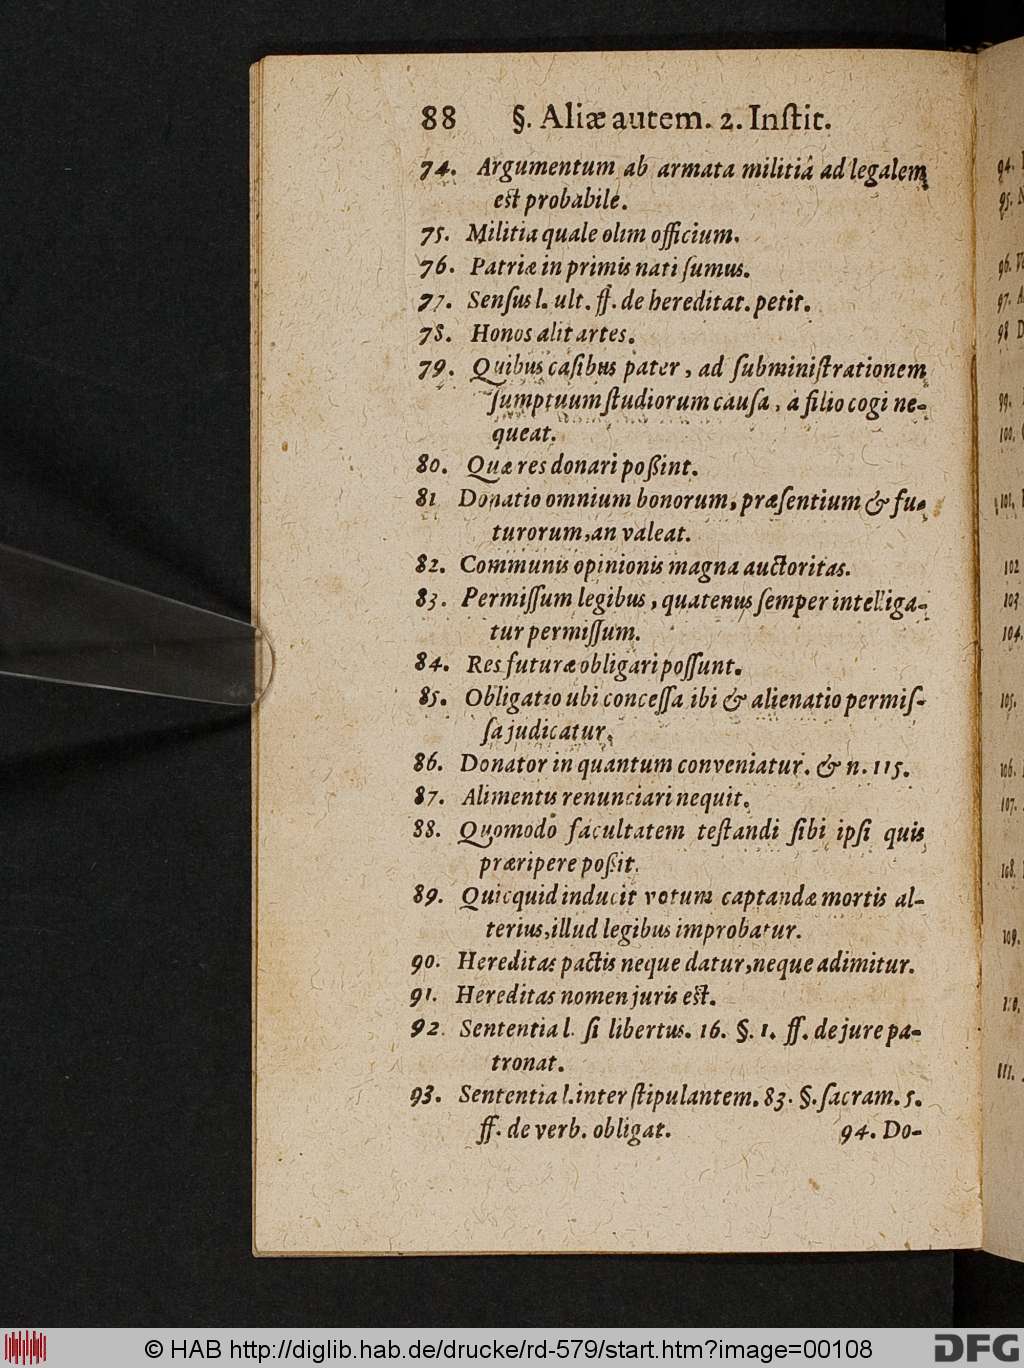 88 §. Aliæ autem. 2. Inſtit.
74. Argumentum ab armata militiâ ad legalem
est probabile.
75. Militia quale olim officium.
76. Patriæ in primis nati ſumus.
77. Senſus l. ult. ff. de hereditat. petit.
78. Honos alit artes.
79. Quibus caſibus pater, ad ſubminiſtrationem
ſumptuum ſtudiorum cauſa, à filio cogi ne-
queat.
80. Quæ res donari poßint.
81 Donatio omnium bonorum, præſentium & fu-
turorum, an valeat.
82. Communis opinionis magna auctoritas.
83. Permiſſum legibus, quatenus ſemper intelliga-
tur permiſſum.
84. Res futuræ obligari poſſunt.
85. Obligatio ubi conceſſa ibi & alienatio permiſ-
ſa judicatur.
86. Donator in quantum conveniatur. & n. 115.
87. Alimentis renunciari nequit.
88. Quomodo facultatem teſtandi ſibi ipſi quis
præripere poßit.
89. Quicquid inducit votum captandæ mortis al-
terius, illud legibus improbatur.
90. Hereditas pactis neque datur, neque adimitur.
91. Hereditas nomen juris est.
92. Sententia l. ſi libertus. 16. §. 1. ff. de jure pa-
tronat.
93. Sententia l. inter ſtipulantem. 83. §. ſacram. 5.
ff. de verb. obligat. 94. Do-
94.
95.
96.
97.
98
99.
100.
101.
102
103
104.
105.
106.
107.
108.
109.
111.
© HAB http://diglib.hab.de/drucke/rd-579/start.htm?image=00108
DFG